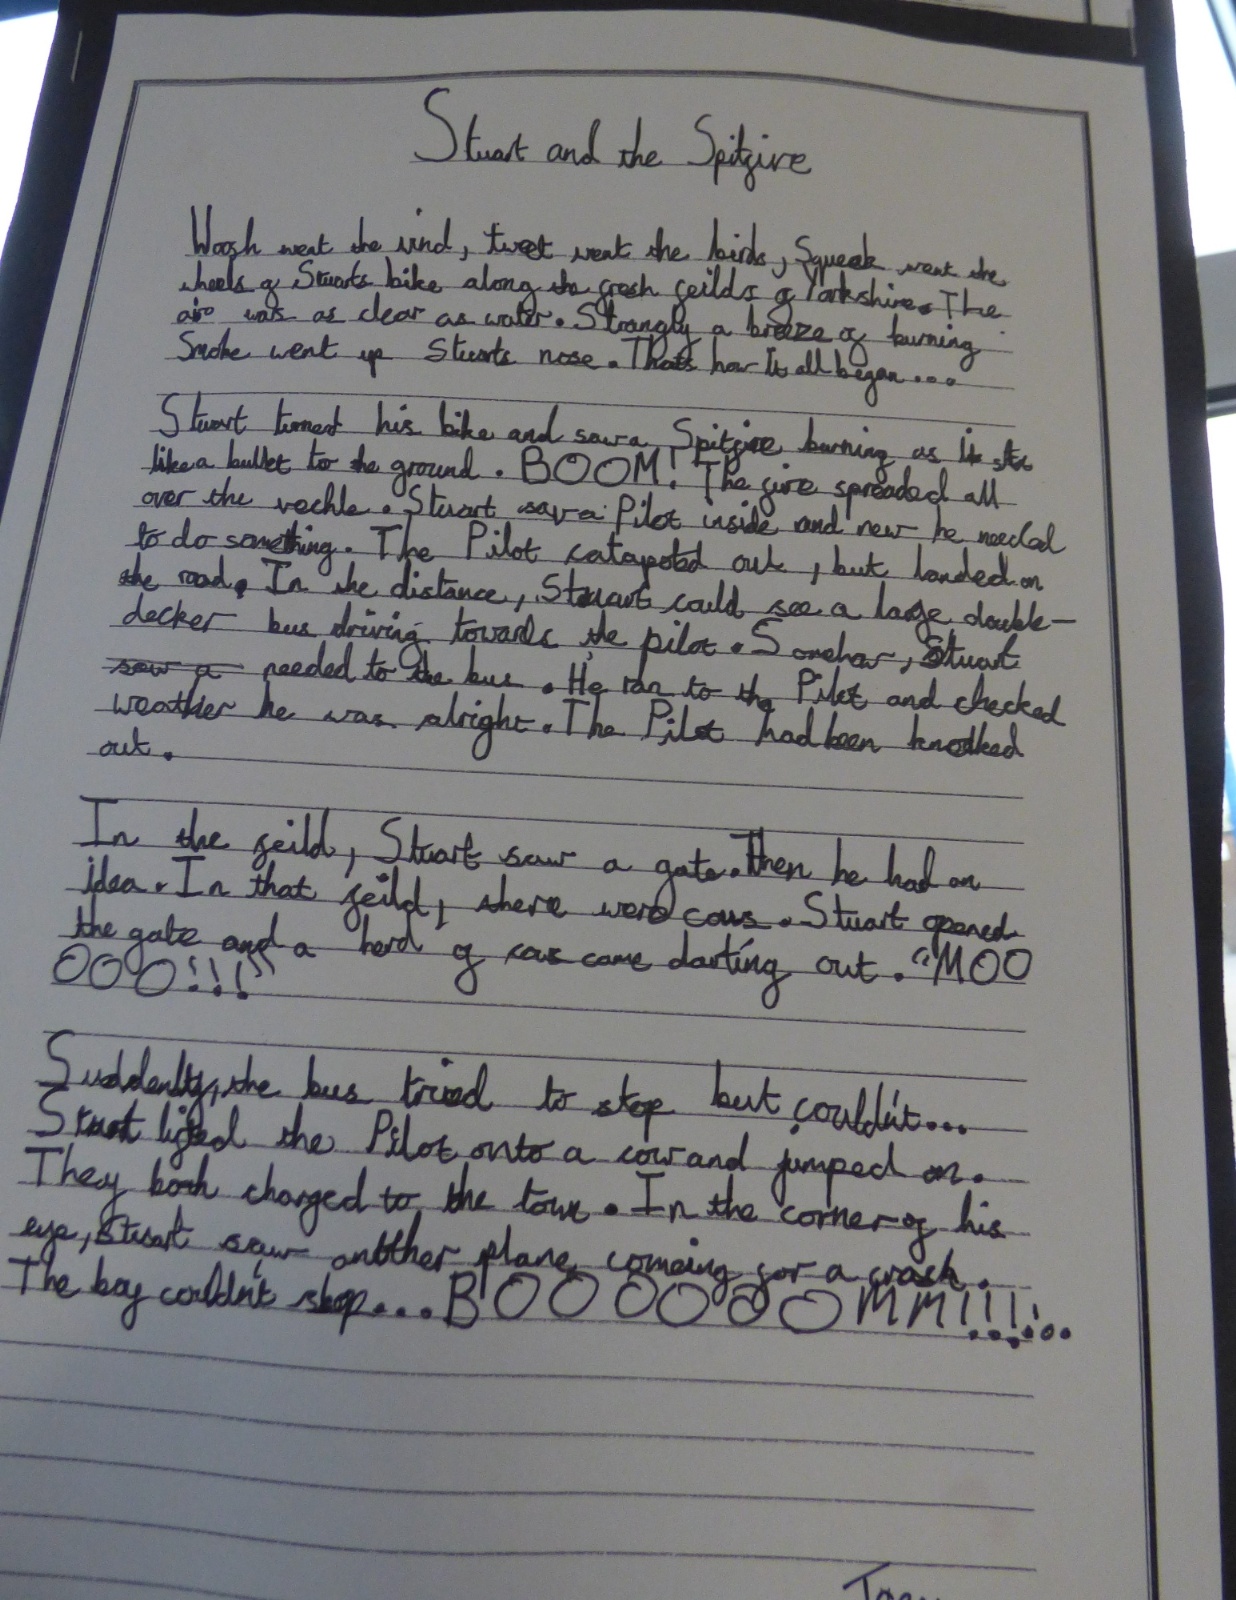 Stuart and the Spitfire
Woosh went the wind, tweet went the birds, Squeek went the
wheels of Stuarts bike along the fresh feilds of Yorkshire. The
air was as clear as water. Strangly a breeze of burning
Smoke went up Stuarts nose. Thats how it all began...
Stuart turned his bike and saw a Spitfire burning as it
like a bullet to the ground. BOOM! The fire spreaded all
over the vechle. Stuart saw a Pilot inside and new he needed
to do something. The Pilot catapoted out, but landed on
the road. In the distance, Stuart could see a large double-
decker bus driving towards the pilot. Somehow, Stuart
saw a needed to the bus. He ran to the Pilot and checked
weather he was alright. The Pilot had been knocked
out.
In the feild, Stuart saw a gate. Then he had an
idea. In that feild, there were cows. Stuart opened
the gate and a herd of cows came darting out. "MOO
OOO!!!"
Suddenly, the bus tried to stop but couldn't...
Stuart lifted the Pilot onto a cow and jumped on.
They both charged to the town. In the corner of his
eye, Stuart saw another plane comeing for a crash.
The boy couldn't stop... BOOOOOOOMM!!!!...